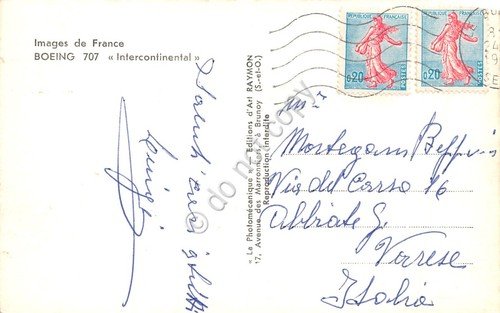 Images de France
BOEING 707 « Intercontinental »
Saluti cari a tutti
Luigi
« La Photomécanique » Editions d'Art RAYMON
17, Avenue des Marronniers, à Brunoy (S.-et-O.)
Reproduction interdite
RÉPUBLIQUE FRANÇAISE
0,20
POSTES
RÉPUBLIQUE FRANÇAISE
0,20
POSTES
Via del Corso 16
Abbiate G.
Varese
Italia
do not copy